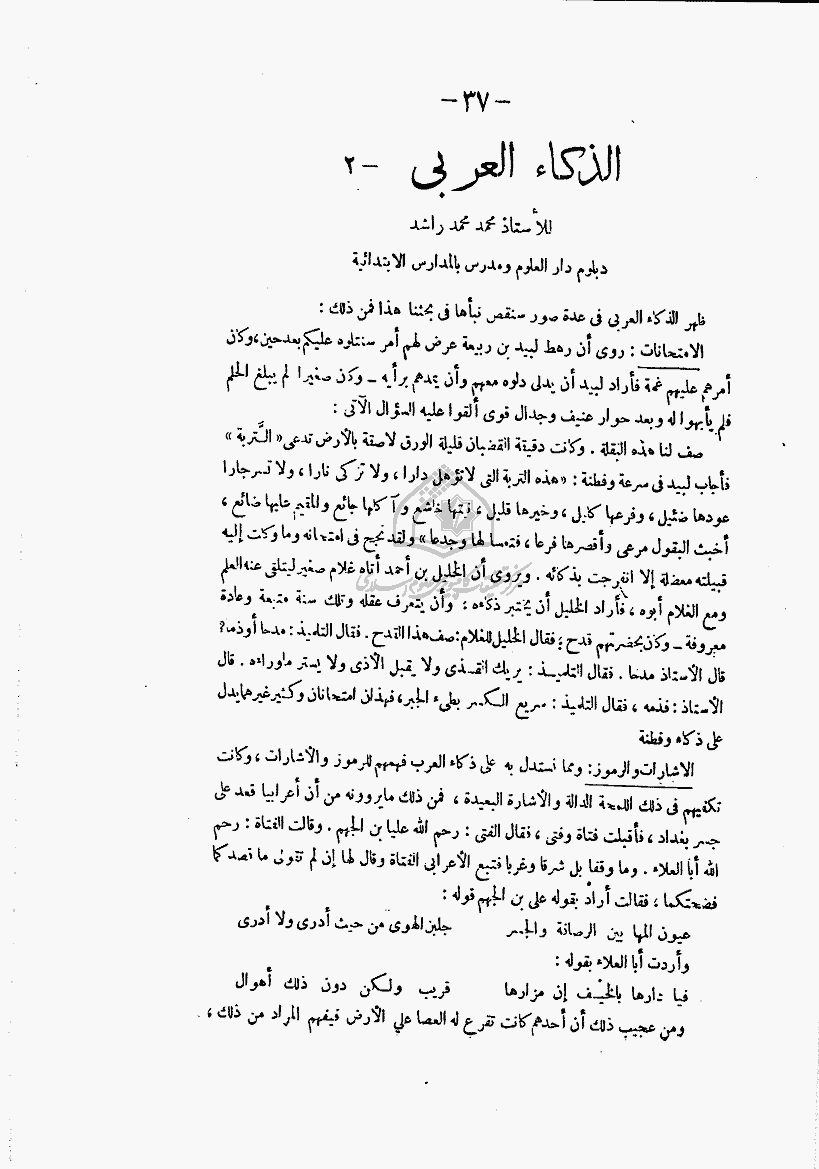 — ٣٧ —
الذكاء العربى — ٢
للأستاذ محمد محمد راشد
دبلوم دار العلوم ومدرس بالمدارس الابتدائية
ظهر الذكاء العربى فى عدة صور سنقص نبأها فى بحثنا هذا فمن ذلك :
الامتحانات : روى أن رهط لبيد بن ربيعة عرض لهم أمر سنتلوه عليكم بعد حين، وكان
أمرهم عليهم غمة فأراد لبيد أن يدلى دلوه معهم وأن يمدهم برأيه — وكان صغيرا لم يبلغ الحلم
فلم يأبهوا له وبعد حوار عنيف وجدال قوى ألقوا عليه السؤال الآتى :
صف لنا هذه البقلة . وكانت دقيقة القضبان قليلة الورق لاصقة بالأرض تدعى « التَّربة »
فأجاب لبيد فى سرعة وفطنة : « هذه التربة التى لا تؤهل دارا ، ولا تزكى نارا ، ولا تسر جارا
عودها ضئيل ، وفرعها كليل ، وخيرها قليل ، نبتها خاشع و آكلها جائع والمقيم عليها ضائع ،
أخبث البقول مرعى وأقصرها فرعا ، فتعسا لها وجدعا » ولقد نجح فى امتحانه وما وكلت إليه
قبيلته معضلة إلا انفرجت بذكائه . ويروى أن الخليل بن أحمد أتاه غلام صغير ليتلقى عنه العلم
ومع الغلام أبوه ، فأراد الخليل أن يختبر ذكاءه ؛ وأن يتعرف عقله وتلك سنة متبعة وعادة
معروفة — وكان بحضرتهم قدح ؛ فقال الخليل للغلام: صف هذا القدح . فقال التلميذ : مدحا أو ذما؟
قال الأستاذ مدحا . فقال التلميذ : يريك القذى ولا يقبل الأذى ولا يستر ماوراءه . قال
الأستاذ : فذمه ، فقال التلميذ : سريع الكسر بطىء الجبر، فهذان امتحانان وكثير غيرهما يدل
على ذكاء وفطنة
الاشارات والرموز: ومما نستدل به على ذكاء العرب فهمهم للرموز والاشارات ، وكانت
تكفيهم فى ذلك اللمحة الدالة والاشارة البعيدة ، فمن ذلك مايروونه من أن أعرابيا قعد على
جسر بغداد ، فأقبلت فتاة وفتى ، فقال الفتى : رحم الله عليا بن الجهم . وقالت الفتاة : رحم
الله أبا العلاء . وما وقفا بل شرقا وغربا فتبع الأعرابى الفتاة وقال لها إن لم تقولى ما قصدكما
فضحتكما ، فقالت أراد بقوله على بن الجهم قوله :
عيون المها بين الرصافة والجسر جلبن الهوى من حيث أدرى ولا أدرى
وأردت أبا العلاء بقوله :
فيا دارها بالخيف إن مزارها قريب ولكن دون ذلك أهوال
ومن عجيب ذلك أن أحدهم كانت تقرع له العصا على الأرض فيفهم المراد من ذلك ،